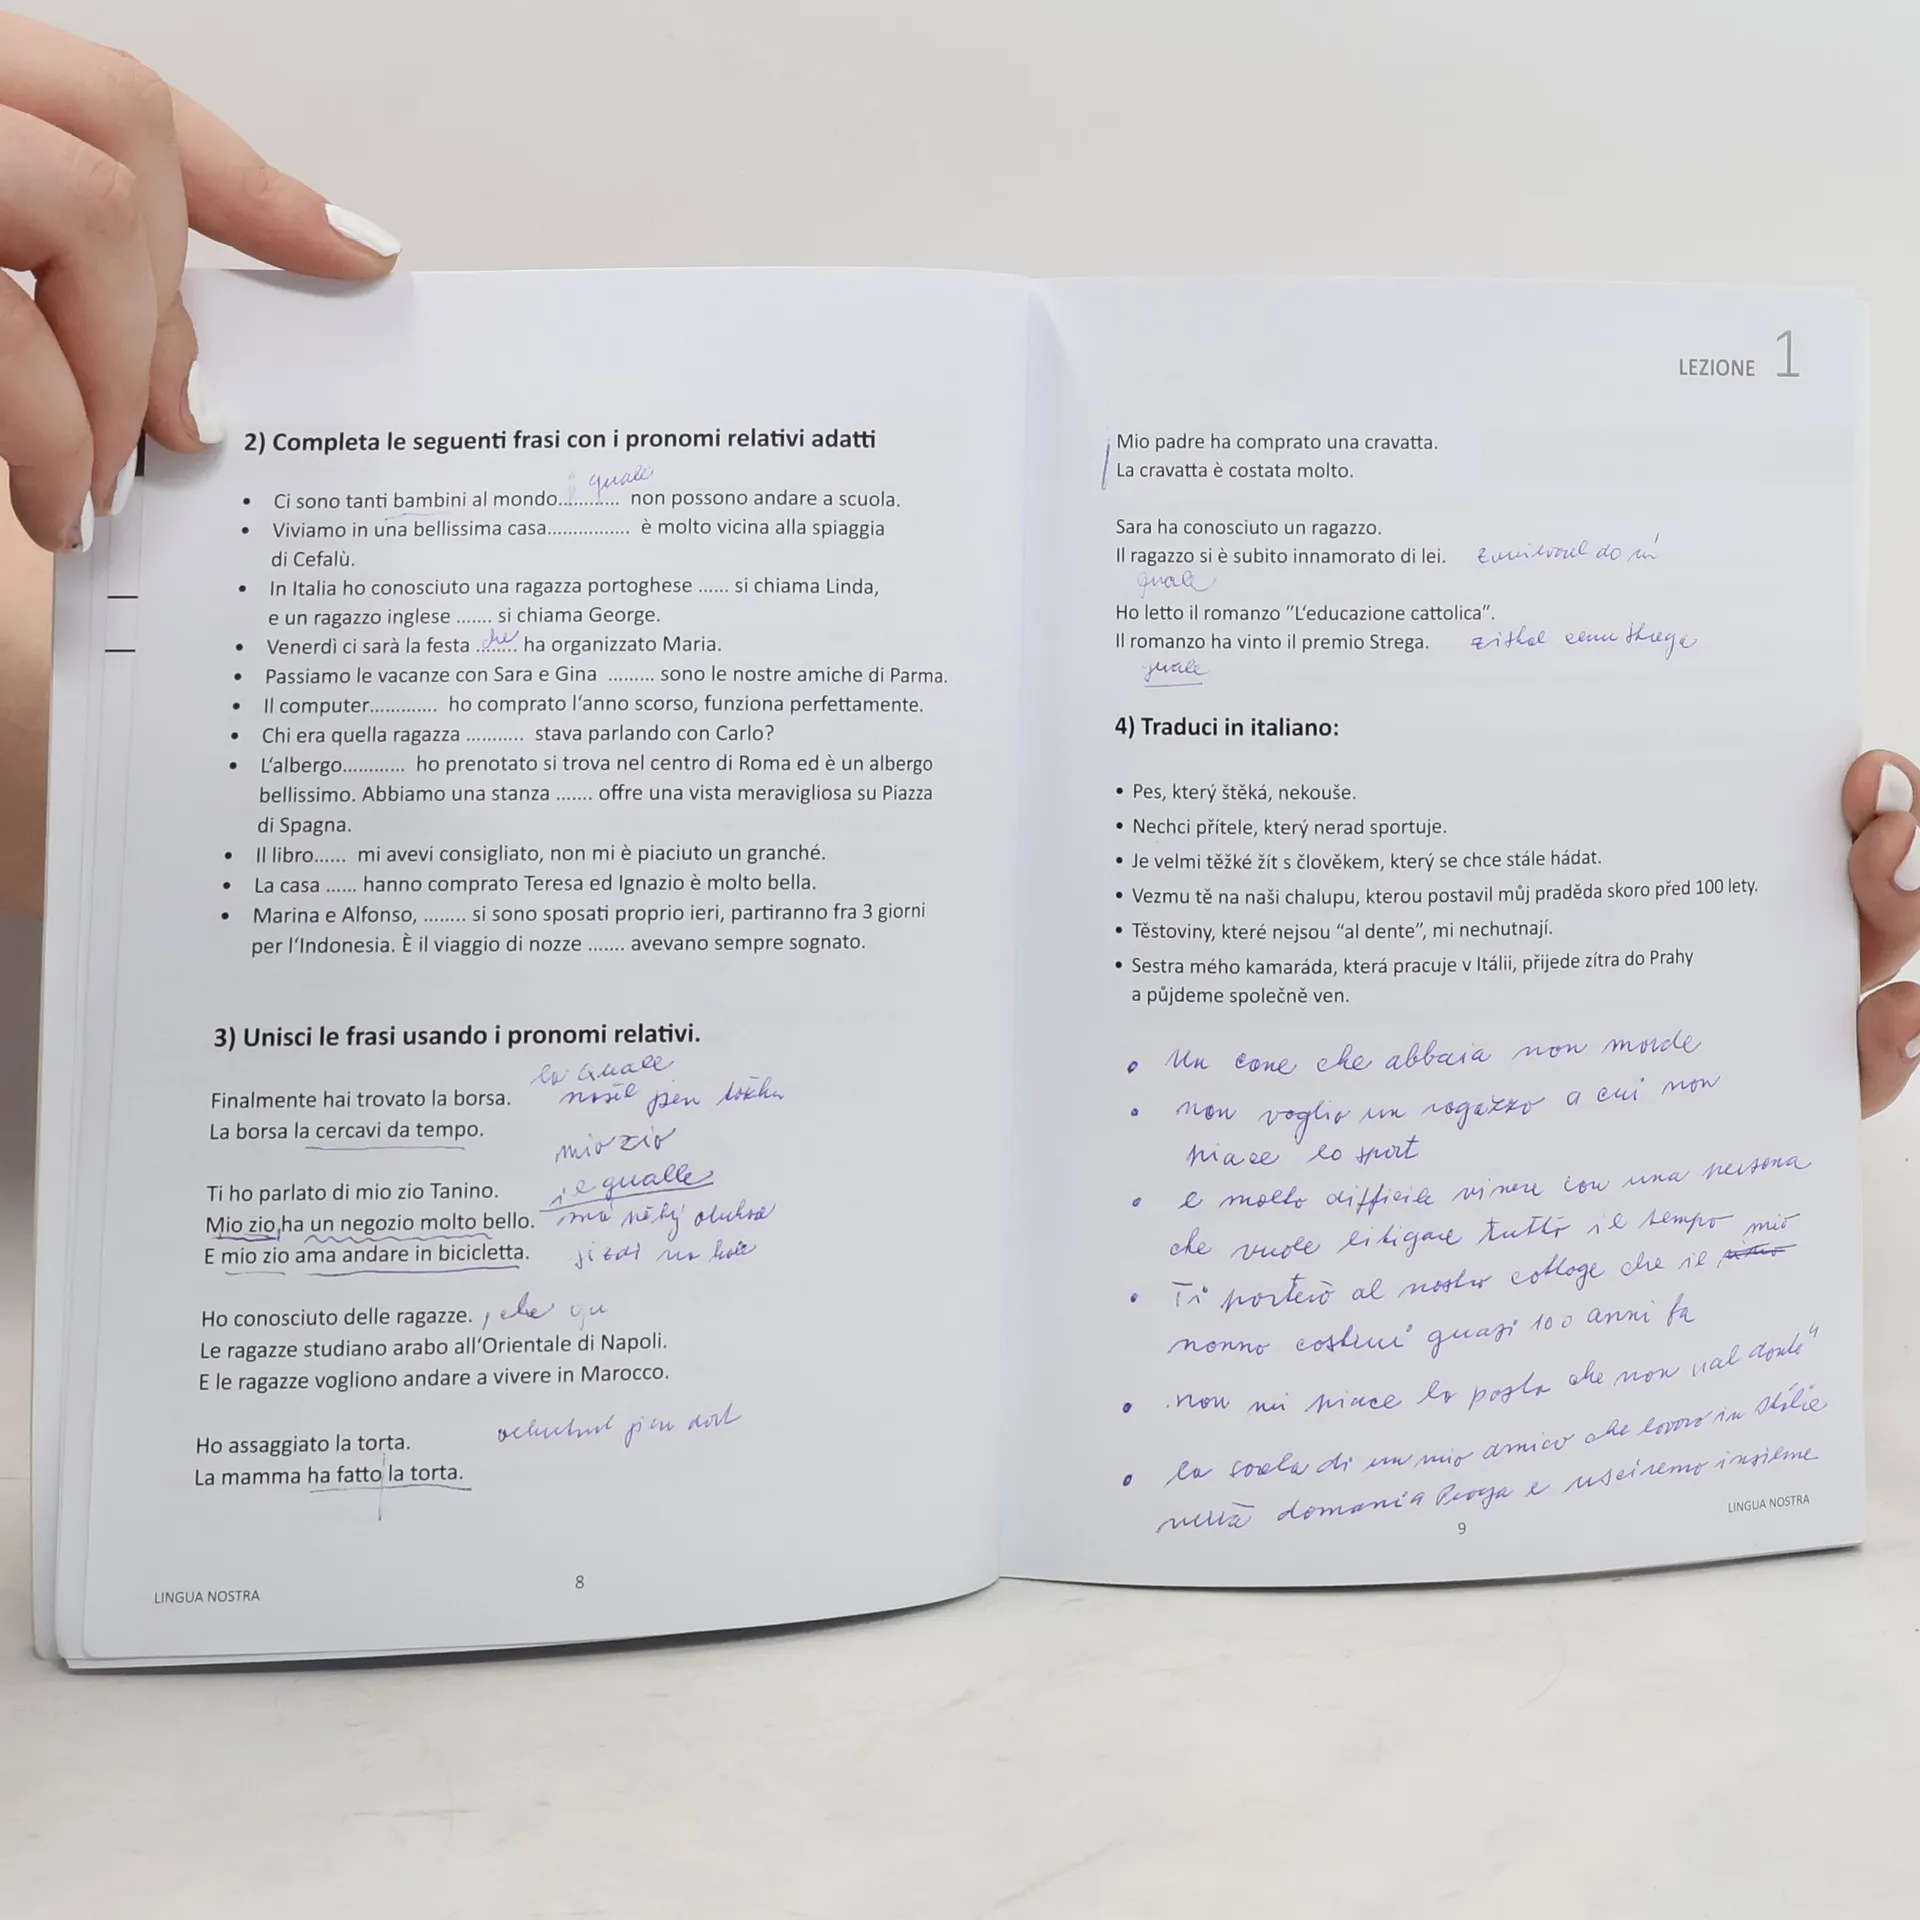 2) Completa le seguenti frasi con i pronomi relativi adatti
quale
• Ci sono tanti bambini al mondo............ non possono andare a scuola.
• Viviamo in una bellissima casa............... è molto vicina alla spiaggia
di Cefalù.
• In Italia ho conosciuto una ragazza portoghese ...... si chiama Linda,
e un ragazzo inglese ....... si chiama George.
• Venerdì ci sarà la festa ..che.. ha organizzato Maria.
• Passiamo le vacanze con Sara e Gina ......... sono le nostre amiche di Parma.
• Il computer............. ho comprato l'anno scorso, funziona perfettamente.
• Chi era quella ragazza ........... stava parlando con Carlo?
• L'albergo............ ho prenotato si trova nel centro di Roma ed è un albergo
bellissimo. Abbiamo una stanza ....... offre una vista meravigliosa su Piazza
di Spagna.
• Il libro...... mi avevi consigliato, non mi è piaciuto un granché.
• La casa ...... hanno comprato Teresa ed Ignazio è molto bella.
• Marina e Alfonso, ........ si sono sposati proprio ieri, partiranno fra 3 giorni
per l'Indonesia. È il viaggio di nozze ....... avevano sempre sognato.
3) Unisci le frasi usando i pronomi relativi.
la quale
Finalmente hai trovato la borsa.
La borsa la cercavi da tempo.
mio zio
Ti ho parlato di mio zio Tanino. il qualle
Mio zio, ha un negozio molto bello. má
E mio zio ama andare in bicicletta. jezdí na kole
Ho conosciuto delle ragazze. , che qu
Le ragazze studiano arabo all'Orientale di Napoli.
E le ragazze vogliono andare a vivere in Marocco.
Ho assaggiato la torta.
La mamma ha fatto la torta.
LINGUA NOSTRA
8
LEZIONE 1
Mio padre ha comprato una cravatta.
La cravatta è costata molto.
Sara ha conosciuto un ragazzo.
Il ragazzo si è subito innamorato di lei. zamiloval do ní
quale
Ho letto il romanzo "L'educazione cattolica".
Il romanzo ha vinto il premio Strega. získal cenu Strega
quale
4) Traduci in italiano:
• Pes, který štěká, nekouše.
• Nechci přítele, který nerad sportuje.
• Je velmi těžké žít s člověkem, který se chce stále hádat.
• Vezmu tě na naši chalupu, kterou postavil můj praděda skoro před 100 lety.
• Těstoviny, které nejsou "al dente", mi nechutnají.
• Sestra mého kamaráda, která pracuje v Itálii, přijede zítra do Prahy
a půjdeme společně ven.
• Un cane che abbaia non morde
• non voglio un ragazzo a cui non
piace lo sport
• e molto difficile vivere con una persona
che vuole litigare tutto il tempo
mio
• Ti porterò al nostro cottoge che il
nonno costruì quasi 100 anni fa
• non mi piace la pasta che non "al dente"
• la sorela di un mio amico che lavora in Itálie
verrà domani a Praga e usciremo insieme
9
LINGUA NOSTRA